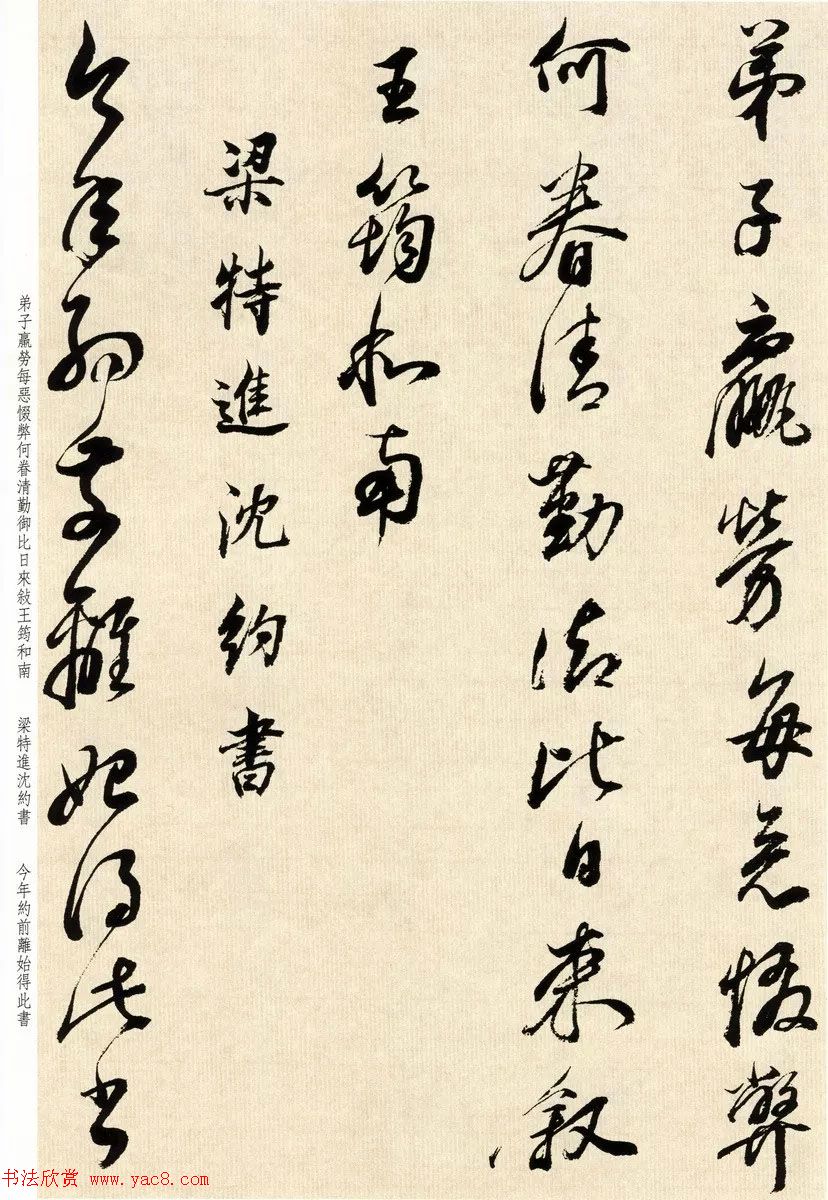 弟子羸勞每惡惙弊
何眷清勤御比日來敍
王筠和南
梁特進沈約書
今年約前離始得此書
弟子羸勞每惡惙弊何眷清勤御比日來敍王筠和南 梁特進沈約書 今年約前離始得此書
书法欣赏 www.yac8.com